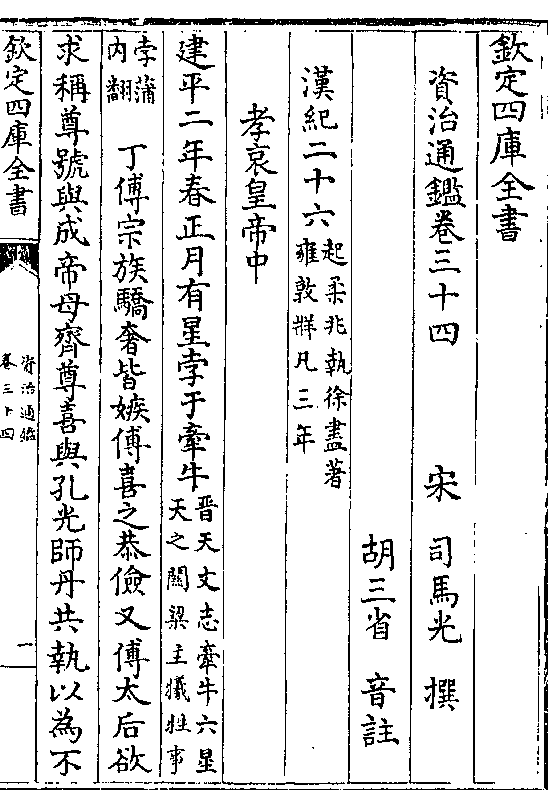 欽定四庫全書
資治通鑑卷三十四
宋 司馬光 撰
胡三省 音註
漢紀二十六
起柔兆執徐盡著
雍敦牂凡三年
孝哀皇帝中
建平二年春正月有星孛于牽牛
晉天文志牽牛六星
天之關梁主犧牲事
孛蒲
內翻
丁傅宗族驕奢皆嫉傅喜之恭儉又傅太后欲
求稱尊號與成帝母齊尊喜與孔光師丹共執以為不
欽定四庫全書
資治通鑑
卷三十四
一